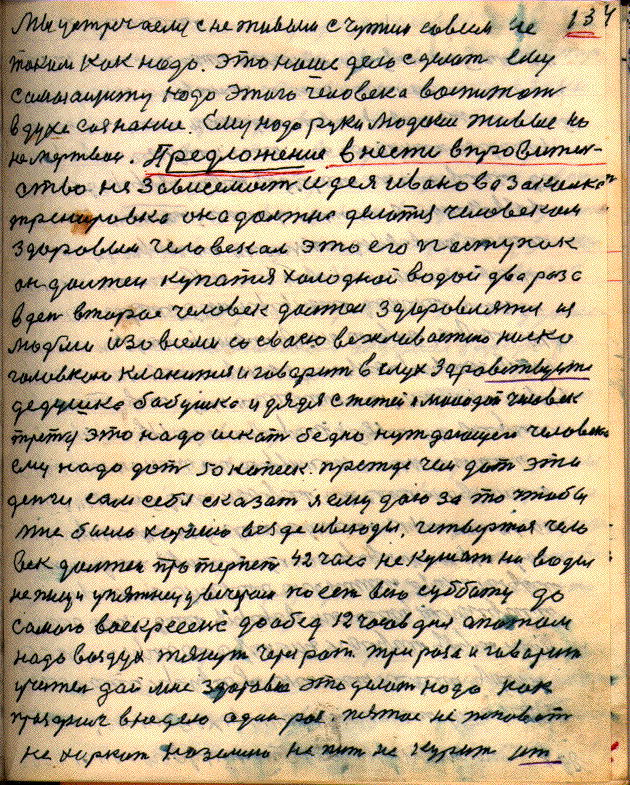 134
Мы устречаемся не живым с чужим совсем не
таким как надо. Это наше дело сделат ему
самозащиту надо этого человека воспитат
в духе сознание. Ему надо руки людские живые но
не мертвыи. Предложение внести в правител-
ство не зависемост идея Иванова закалка
тренировка она должна делатся человеком
здоровым человекам это его поступок
он должен купатся холодной водой два раза
в ден второе человек должен здоровлятся из
людми изо всеми со своею вежливастию ниско
головкою кланится и говорит в слух здравствуйте
дедушка бабушка и дядя с тетей и молодой человек
трету это надо искат бедно нуждающего человека
ему надо дат 50 копеек. прежде чем дат эти
денги сам себе сказат я ему даю за то чтобы
мне было хорошо везде и всюды, четвертое чело
век должен протерпет 42 часа не кушат ни воды
не пищи у пятницу вечером не ест всю субботу до
самого воскресенс до обед 12 часов дня а потом
надо воздух тянут через рот три раза и говорит
учител дай мне здоровие это делат надо как
празднич в неделю один раз. пятое не плеват
не харкат на землю не пит не курит ит